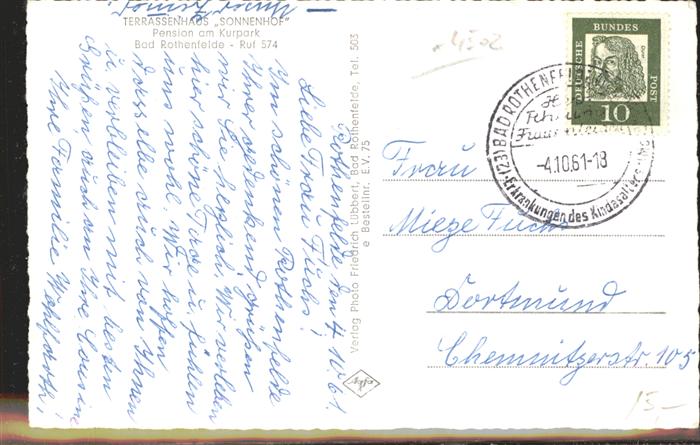 TERRASSENHAUS „SONNENHOF"
Pension am Kurpark
Bad Rothenfelde - Ruf 574
Rothenfelde, den 4.10.61.
Liebe Frau Fuchs!
Im schönen Rothenfelde
Ihrer gedenkend grüßen
wir Sie herzlich. Wir verleben
hier schöne Tage u. fühlen
uns wohl. Wir hoffen
dasselbe auch von Ihnen
u. verbleiben mit besten
Grüßen, auch an Ihre Cousine
Ihre Familie
Verlag Photo Friedrich Lübbert, Bad Rothenfelde, Tel. 503
e Bestellnr. E.V. 75
Agfa
4502
DEUTSCHE BUNDES POST
10
(23) BAD ROTHENFELDE
-4.10.61-18
Erkrankungen des Kindesalters
Frau
Mieze Fuchs
Dortmund
Chemnitzerstr. 105
15,-